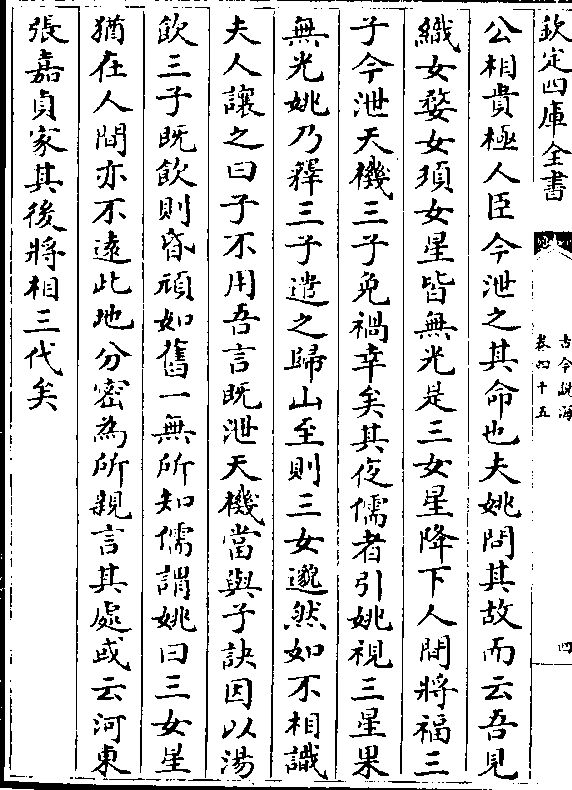 欽定四庫全書
古今說海
卷四十五
四
公相貴極人臣今泄之其命也夫姚問其故而云吾見
織女婺女須女星皆無光是三女星降下人間將福三
子今泄天機三子免禍幸矣其夜儒者引姚視三星果
無光姚乃釋三子遣之歸山至則三女邈然如不相識
夫人讓之曰子不用吾言既泄天機當與子訣因以湯
飲三子既飲則昏頑如舊一無所知儒謂姚曰三女星
猶在人間亦不遠此地分密為所親言其處或云河東
張嘉貞家其後將相三代矣